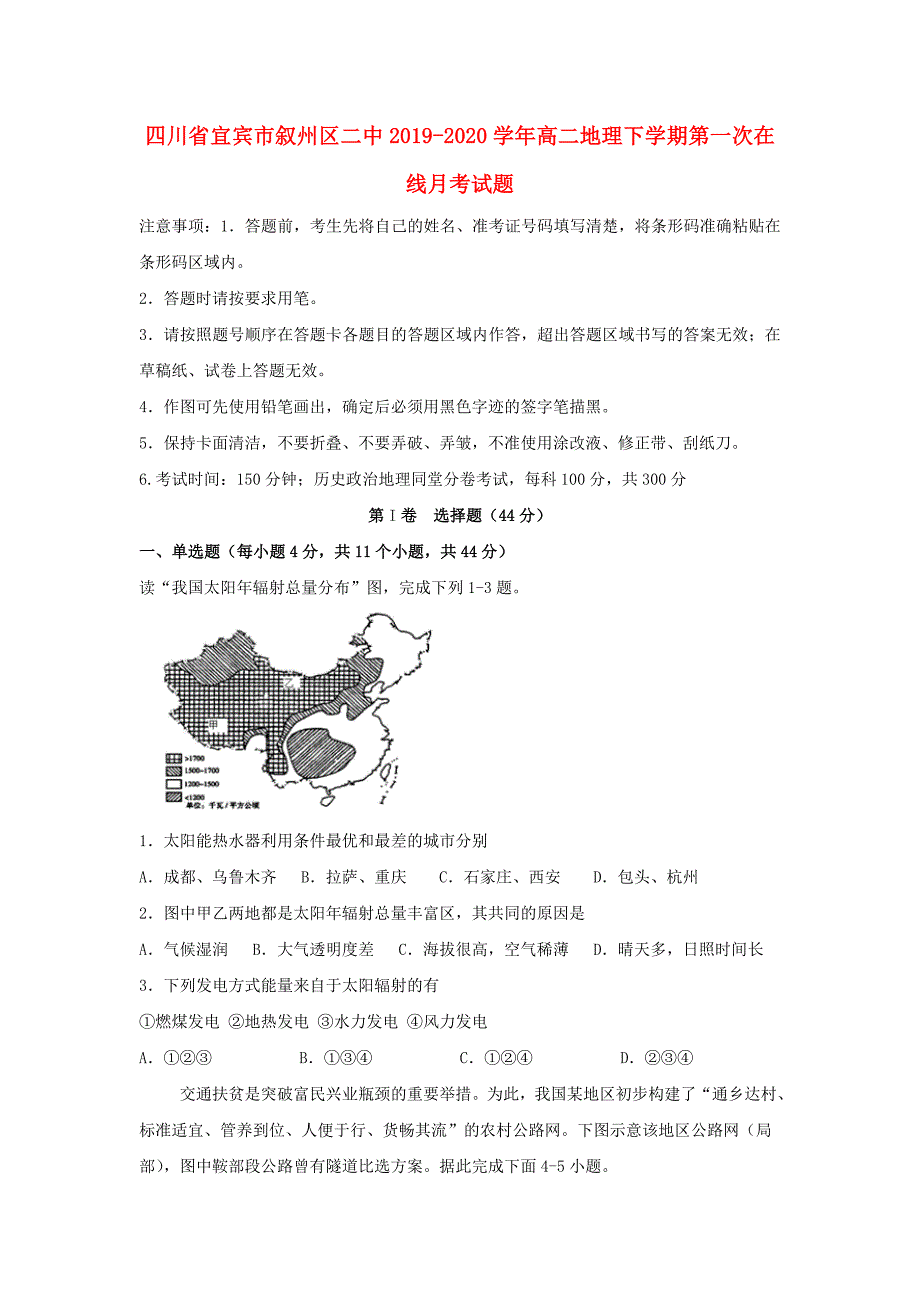 四川省宜宾市叙州区二中 2019-2020 学年高二地理下学期第一次在
线月考试题
注意事项：1．答题前，考生先将自己的姓名、准考证号码填写清楚，将条形码准确粘贴在
条形码区域内。
2．答题时请按要求用笔。
3．请按照题号顺序在答题卡各题目的答题区域内作答，超出答题区域书写的答案无效；在
草稿纸、试卷上答题无效。
4．作图可先使用铅笔画出，确定后必须用黑色字迹的签字笔描黑。
5．保持卡面清洁，不要折叠、不要弄破、弄皱，不准使用涂改液、修正带、刮纸刀。
6.考试时间：150 分钟；历史政治地理同堂分卷考试，每科 100 分，共 300 分
第 I 卷 选择题（44 分）
一、单选题（每小题 4 分，共 11 个小题，共 44 分）
读“我国太阳年辐射总量分布”图，完成下列 1-3 题。
乙
甲
>1700
1500-1700
1200-1500
<1200
单位：千瓦/平方公顷
1．太阳能热水器利用条件最优和最差的城市分别
A．成都、乌鲁木齐 B．拉萨、重庆 C．石家庄、西安 D．包头、杭州
2．图中甲乙两地都是太阳年辐射总量丰富区，其共同的原因是
A．气候湿润 B．大气透明度差 C．海拔很高，空气稀薄 D．晴天多，日照时间长
3．下列发电方式能量来自于太阳辐射的有
①燃煤发电 ②地热发电 ③水力发电 ④风力发电
A．①②③ B．①③④ C．①②④ D．②③④
交通扶贫是突破富民兴业瓶颈的重要举措。为此，我国某地区初步构建了“通乡达村、
标准适宜、管养到位、人便于行、货畅其流”的农村公路网。下图示意该地区公路网（局
部），图中鞍部段公路曾有隧道比选方案。据此完成下面 4-5 小题。